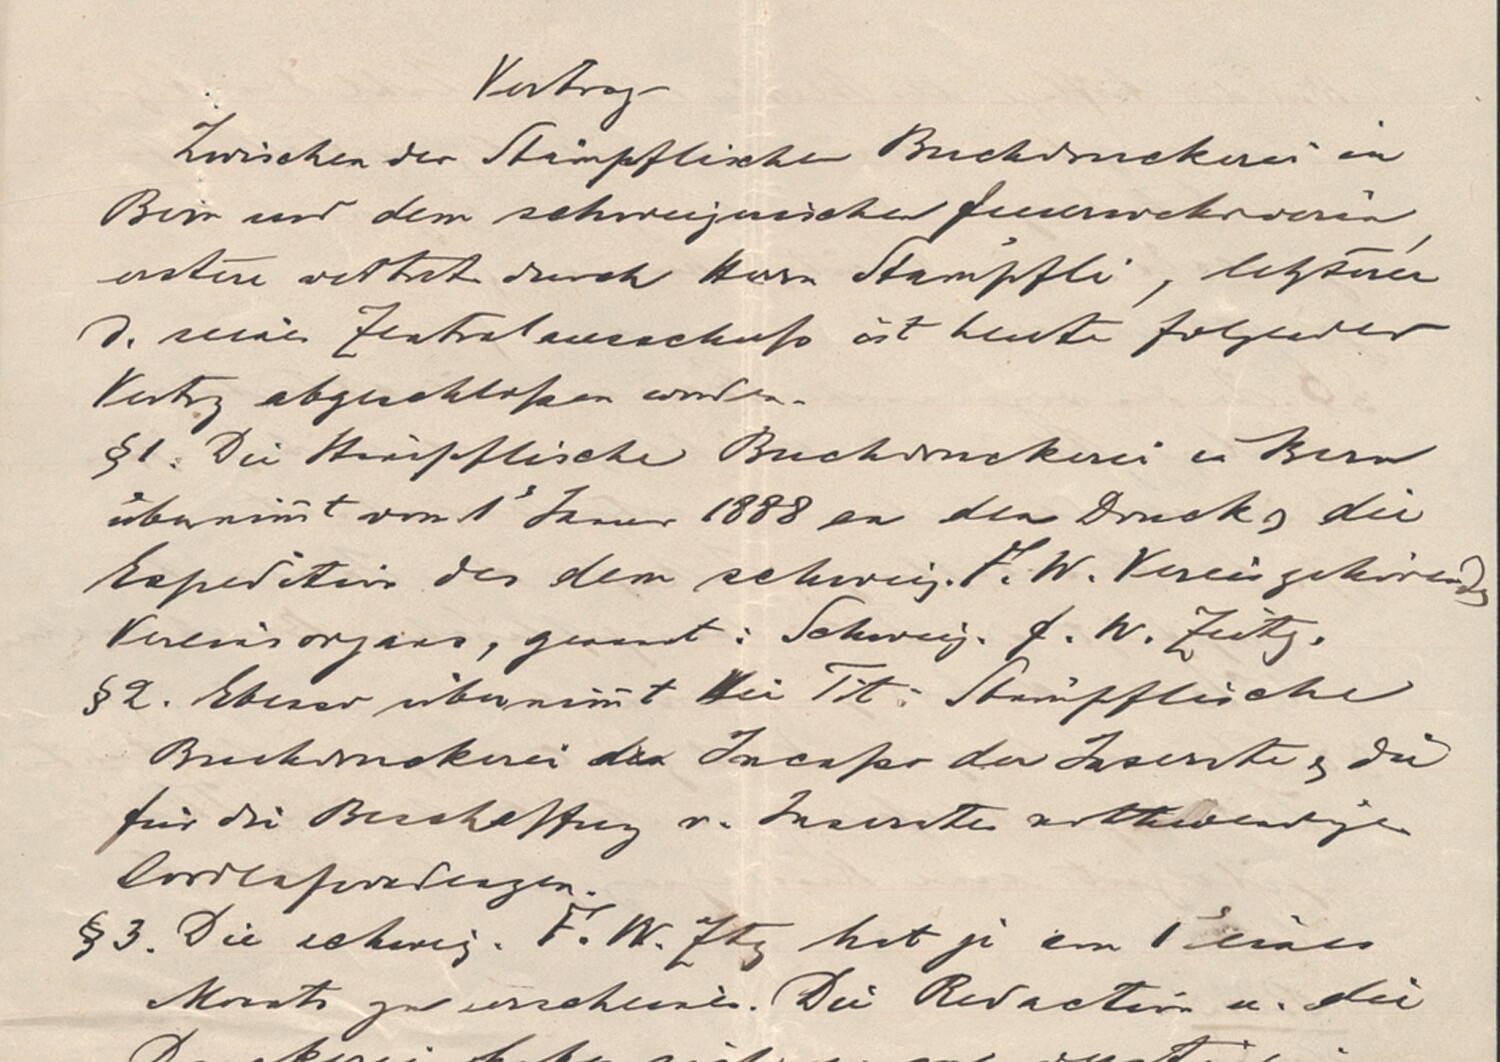 Vertrag
Zwischen der Stämpflischen Buchdruckerei in
Bern und dem schweizerischen Feuerwehrverein,
erstere vertret. durch Herrn Stämpfli, letzterer
d. seinen Zentralausschuß ist heute folgender
Vertrag abgeschloßen worden.
§ 1. Die Stämpflische Buchdruckerei in Bern
übernim̄t vom 1 Januar 1888 an den Druck & die
Expedition des dem schweiz. F. W. Verein gehörende
Vereinsorgans, genannt: Schweiz. F. W. Zeitg.
§ 2. Ebenso übernim̄t die Tit: Stämpflische
Buchdruckerei das Incaßo der Inserate & die
für die Beschaffung v. Inseraten nothwendigen
§ 3. Die schweiz. F. W. Ztg hat je am 1 eines
Monats zu erscheinen. Die Redaction u. die
Druckerei haben sich